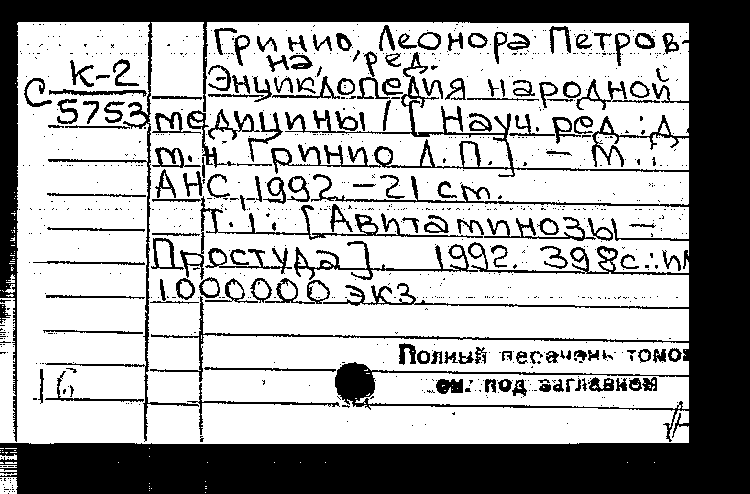 Гринио, Леонора Петров-
на, ред.
С К-2
5753
Энциклопедия народной
медицины / [Науч. ред.: д.
т. н. Гринио Л. П.]. — М.:
АНС, 1992. — 21 ст.
Т. 1: [Авитаминозы —
Простуда]. 1992. 398с.: ил
1000000 экз.
Полный перечень томов
см. под заглавием
16